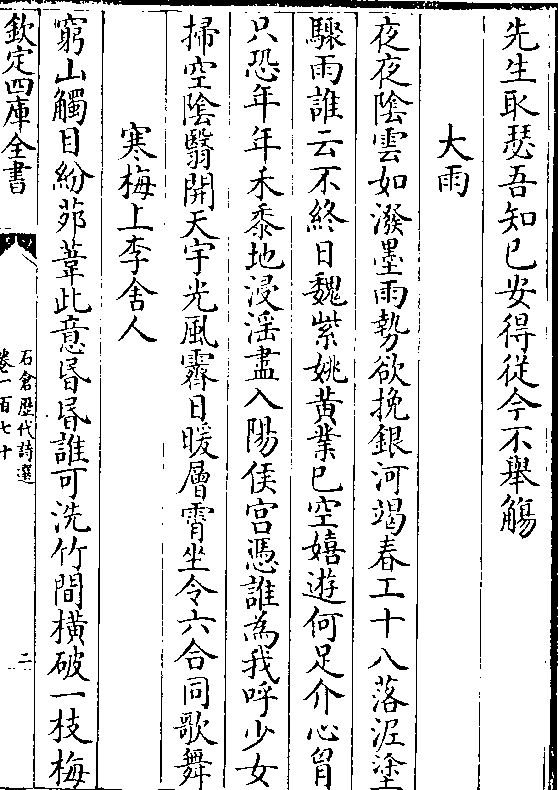 先生取瑟吾知已安得從今不舉觴
大雨
夜夜陰雲如潑墨雨勢欲挽銀河竭春工十八落泥塗
驟雨誰云不終日魏紫姚黃業已空嬉遊何足介心胷
只恐年年禾黍地浸滛盡入陽侯宫憑誰為我呼少女
掃空陰翳開天宇光風霽日暖層霄坐令六合同歌舞
寒梅上李舍人
窮山觸目紛茆葦此意昬昬誰可洗竹間横破一枝梅
欽定四庫全書
石倉歴代詩選
卷一百七十
二